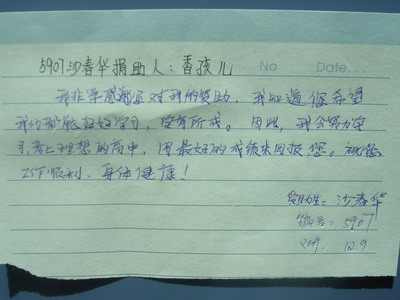 5907沙春华捐助人：香孩儿
No Date...
我非常感谢您对我的资助，我知道您希望
我们都能好好学习，学有所成。因此，我会努力学
习，考上理想的高中，用最好的成绩来回报您。祝您
工作顺利，身体健康！
受助生：沙春华
编号：5907
2009. 12.9